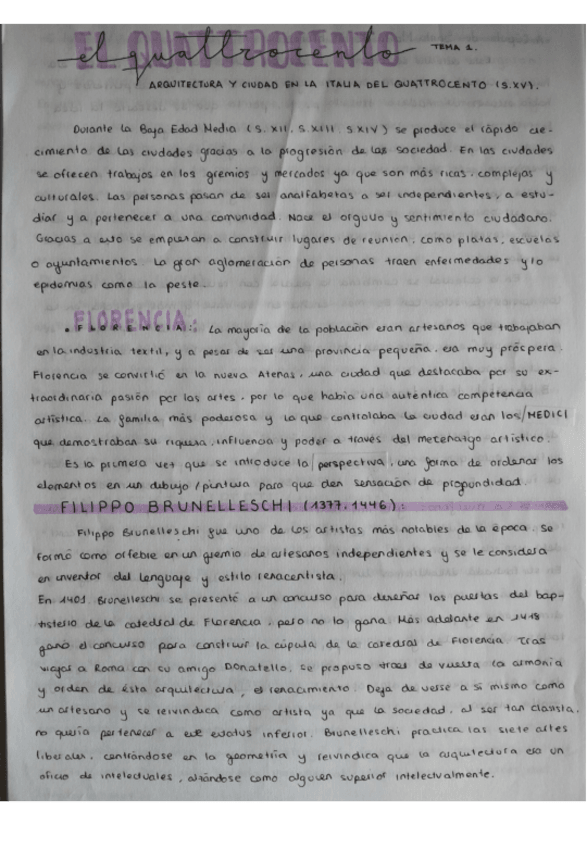 EL QUATTROCENTO
el quattrocento TEMA 1.
ARQUITECTURA Y CIUDAD EN LA ITALIA DEL QUATTROCENTO (S.XV).
Durante la Baja Edad Media (S.XII, S.XIII, S.XIV) se produce el rápido cre-
cimiento de las ciudades gracias a la progresión de las sociedad. En las ciudades
se ofrecen trabajos en los gremios y mercados ya que son más ricas, complejas y
culturales. Las personas pasan de ser analfabetas a ser independientes, a estu-
diar y a pertenecer a una comunidad. Nace el orgullo y sentimiento ciudadano.
Gracias a esto se empiezan a construir lugares de reunión, como plazas, escuelas
o ayuntamientos. La gran aglomeración de personas traen enfermedades y/o
epidemias como la peste.
FLORENCIA
• FLORENCIA: La mayoría de la población eran artesanos que trabajaban
en la industria textil, y a pesar de ser una provincia pequeña, era muy próspera.
Florencia se convirtió en la nueva Atenas, una ciudad que destacaba por su ex-
traordinaria pasión por las artes, por lo que había una auténtica competencia
artística. La familia más poderosa y la que controlaba la ciudad eran los MEDICI
que demostraban su riqueza, influencia y poder a través del mecenazgo artístico.
Es la primera vez que se introduce la perspectiva, una forma de ordenar los
elementos en un dibujo/pintura para que den sensación de profundidad.
FILIPPO BRUNELLESCHI (1377-1446):
Filippo Brunelleschi fue uno de los artistas más notables de la época. Se
formó como orfebre en un gremio de artesanos independientes y se le considera
en inventor del lenguaje y estilo renacentista.
En 1401, Brunelleschi se presentó a un concurso para diseñar las puertas del bap-
tisterio de la catedral de Florencia, pero no lo gana. Más adelante en 1418
ganó el concurso para construir la cúpula de la catedral de Florencia. Tras
viajar a Roma con su amigo Donatello, se propuso traer de vuelta la armonía
y orden de ésta arquitectura, el renacimiento. Deja de verse a si mismo como
un artesano y se reivindica como artista ya que la sociedad, al ser tan clasista,
no quería pertenecer a ese estatus inferior. Brunelleschi practica las siete artes
liberales, centrándose en la geometría y reivindica que la arquitectura era un
oficio de intelectuales, alzándose como alguien superior intelectualmente.